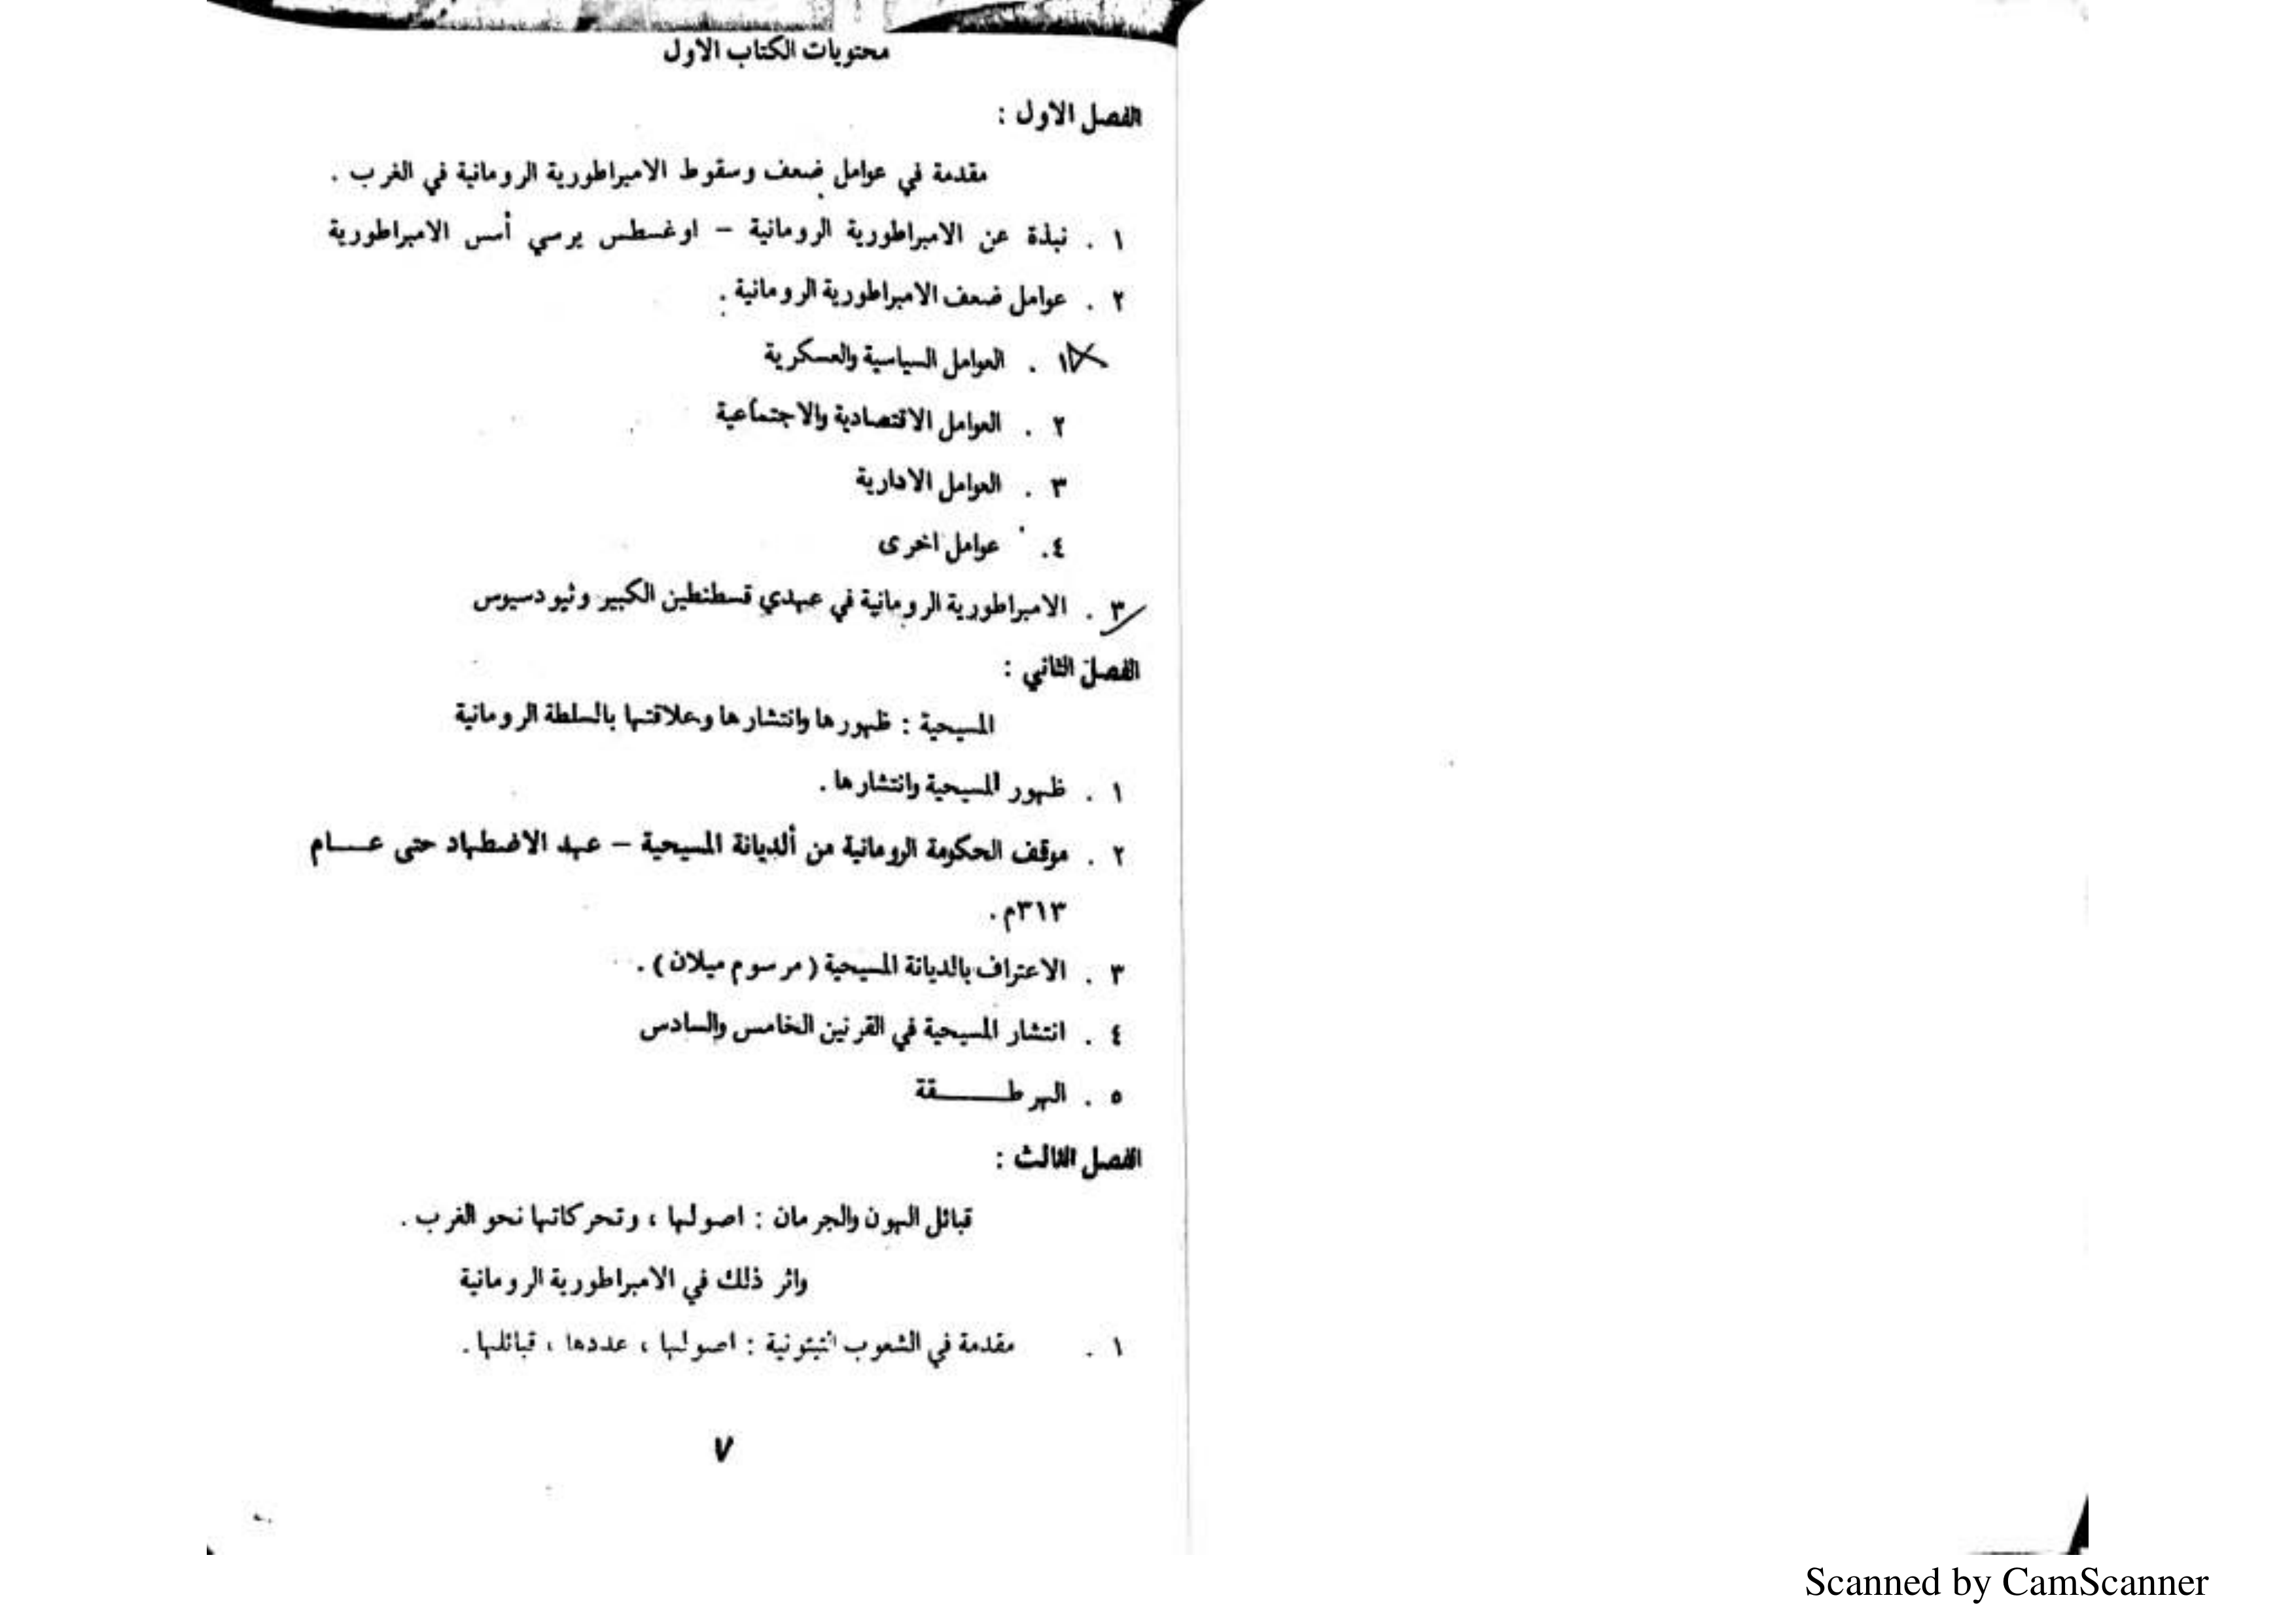 محتويات الكتاب الاول
الفصل الاول :
مقدمة في عوامل ضعف وسقوط الامبراطورية الرومانية في الغرب .
١ . نبذة عن الامبراطورية الرومانية – اوغسطس يرسي أسس الامبراطورية
٢ . عوامل ضعف الامبراطورية الرومانية .
١ . العوامل السياسية والعسكرية
٢ . العوامل الاقتصادية والاجتماعية
٣ . العوامل الادارية
٤. عوامل اخرى
٣ . الامبراطورية الرومانية في عهدي قسطنطين الكبير وثيودسيوس
الفصل الثاني :
المسيحية : ظهورها وانتشارها وعلاقتها بالسلطة الرومانية
١ . ظهور المسيحية وانتشارها .
٢ . موقف الحكومة الرومانية من ألديانة المسيحية – عهد الاضطهاد حتى عـــام
٣١٣م .
٣ . الاعتراف بالديانة المسيحية ( مرسوم ميلان ) .
٤ . انتشار المسيحية في القرنين الخامس والسادس
٥ . الهرطـــــقة
الفصل الثالث :
قبائل الهون والجرمان : اصولها ، وتحركاتها نحو الغرب .
واثر ذلك في الامبراطورية الرومانية
١ . مقدمة في الشعوب التيتونية : اصولها ، عددها ، قبائلها .
٧
Scanned by CamScanner